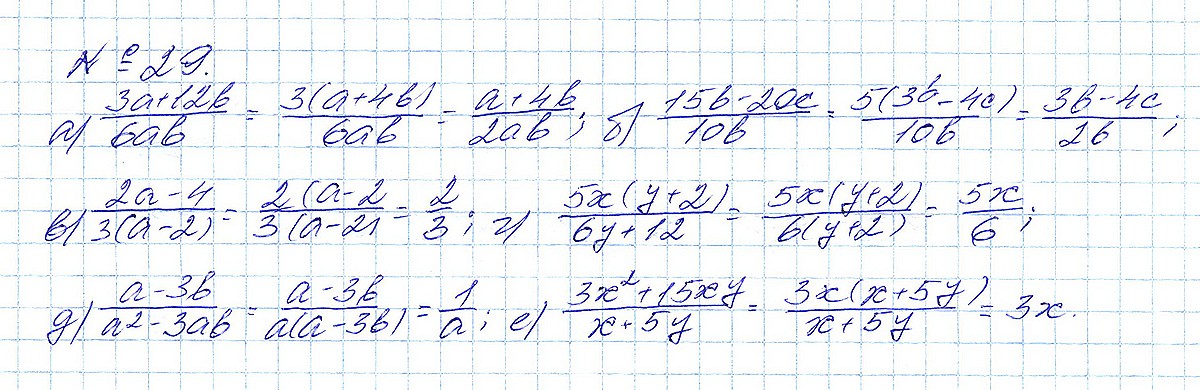 № 29.
а) (3a+12b)/(6ab) = (3(a+4b))/(6ab) = (a+4b)/(2ab); б) (15b-20c)/(10b) = (5(3b-4c))/(10b) = (3b-4c)/(2b);
в) (2a-4)/(3(a-2)) = (2(a-2)/(3(a-2)) = 2/3; г) (5x(y+2))/(6y+12) = (5x(y+2))/(6(y+2)) = 5x/6;
д) (a-3b)/(a²-3ab) = (a-3b)/(a(a-3b)) = 1/a; е) (3x²+15xy)/(x+5y) = (3x(x+5y))/(x+5y) = 3x.